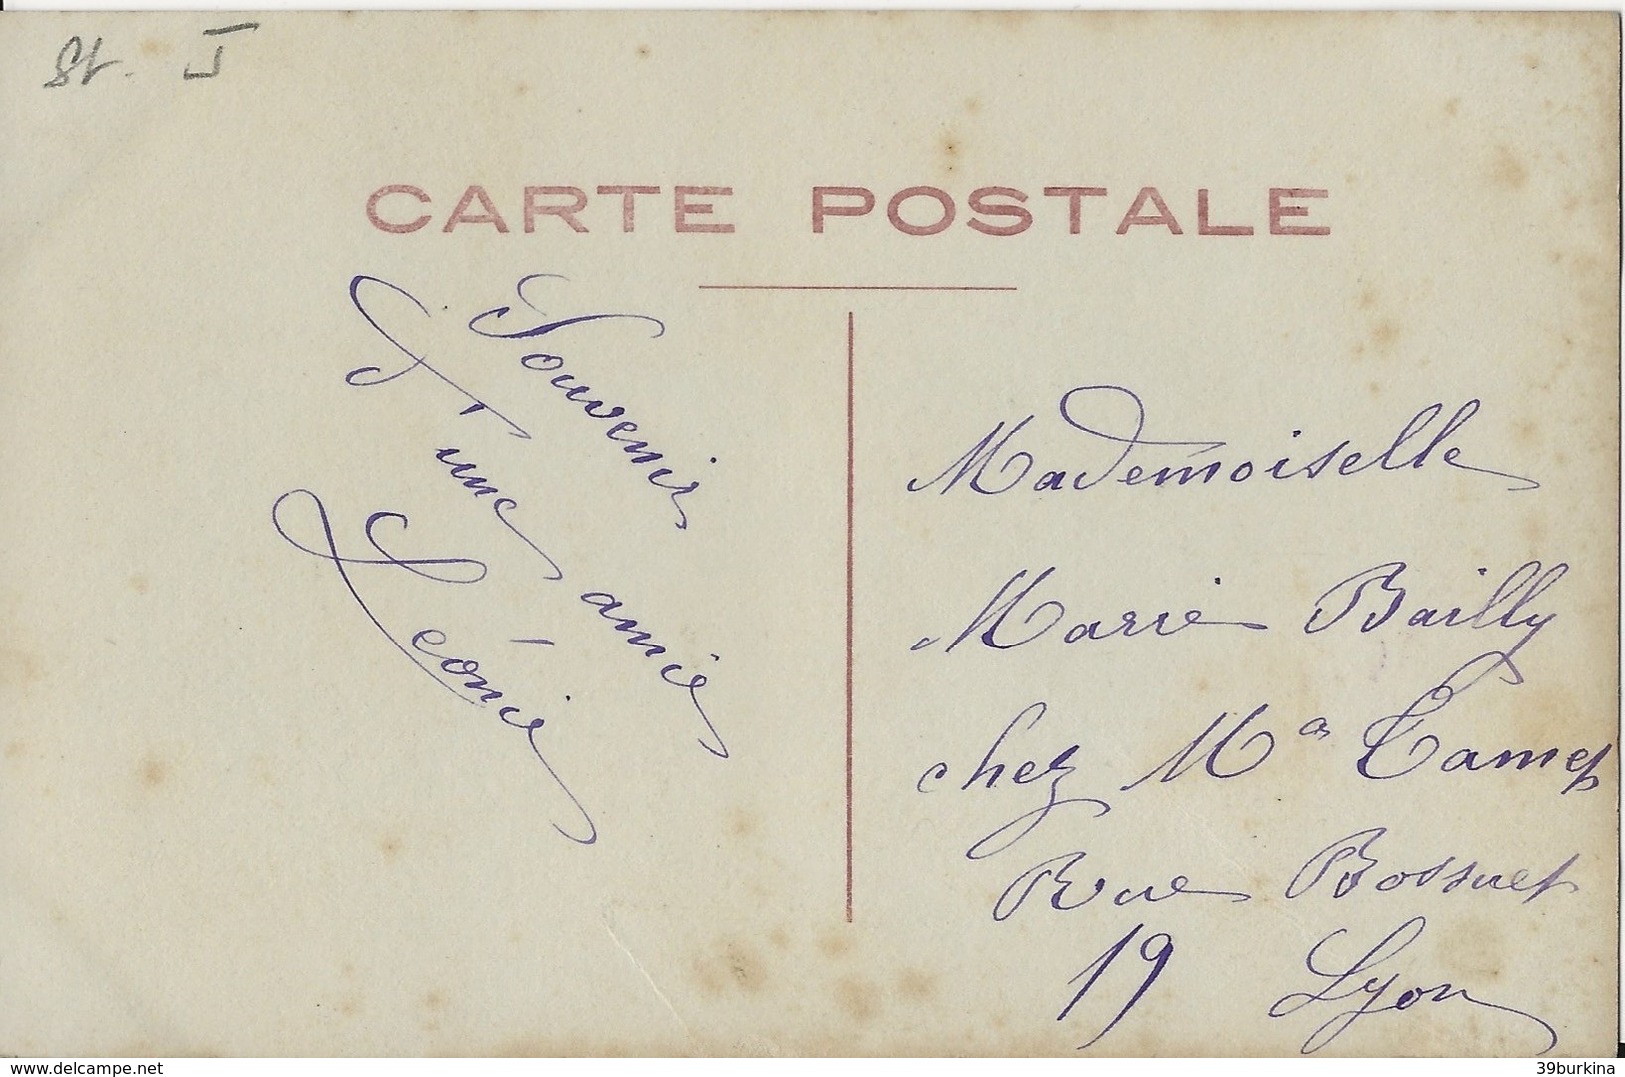 CARTE POSTALE
Souvenir
d'une amie
Léonie
Mademoiselle
Marie Bailly
chez Ma Tamet
Rue Bossuet
19 Lyon
delcampe.net
39burkina